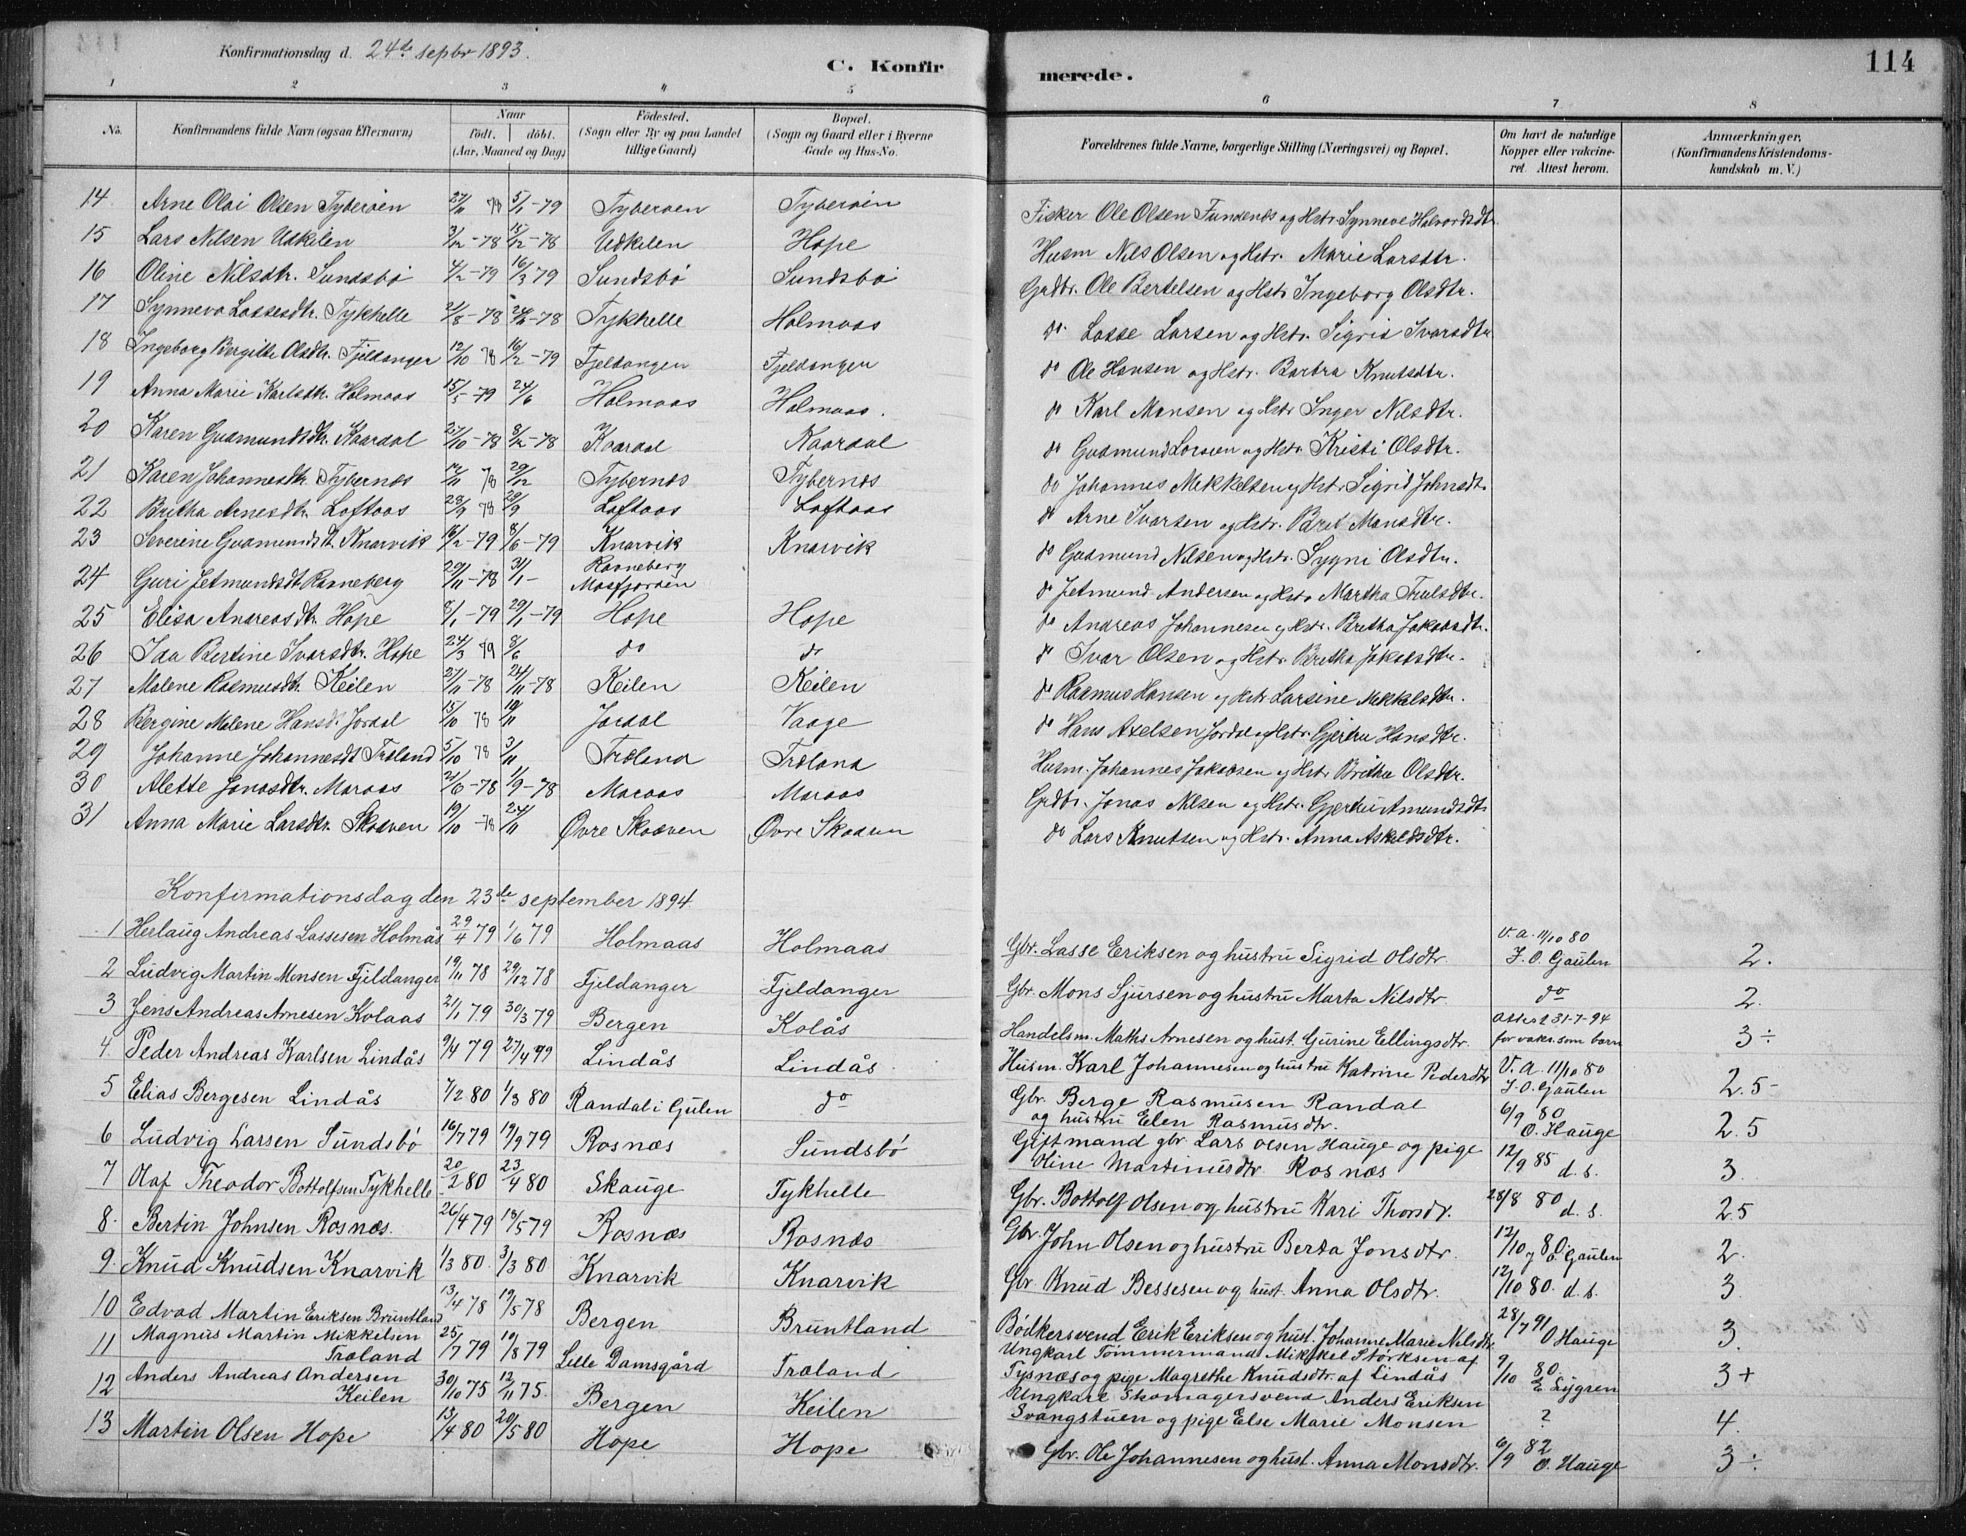 Konfirmationsdag d. 24de sepbr 1893.
C. Konfirmerede.
114
1 2 3 4 5 6 7 8
No.
Konfirmandens fulde Navn (ogsaa Efternavn)
Naar
født. | döbt.
(Aar, Maaned og Dag)
Födested.
(Sogn eller By og paa Landet
tillige Gaard)
Bopæl.
(Sogn og Gaard eller i Byerne
Gade og Hus-No.
Forældrenes fulde Navne, borgerlige Stilling (Næringsvei) og Bopæl.
Om havt de naturlige
Kopper eller vakcine-
ret. Attest herom.
Anmærkninger,
(Konfirmandens Kristendoms-
kundskab m. V.)
14 Arne Olai Olsen Tyberøen 27/11 78 5/1-79 Tyberøen Tyberøen Fisker Ole Olsen og Hstr Synneve Halvordsdtr.
15 Lars Nilsen Udkilen 3/12-78 15/12-78 Udkilen Hope Husm Nils Olsen og Hstr. Marie Larsdtr.
16 Oline Nilsdtr. Sundsbø 4/2-79 16/3 79 Sundsbø Sundsbø Grdbr. Ole Bertelsen og Hstr Ingeborg Olsdtr.
17 Synneva Lassesdtr. Tykhelle 21/8-78 Tykhelle Holmaas do. Lasse Larsen og Hstr. Sigris Ivarsdtr
18 Ingeborg Bergitte Olsdtr. Fjeldanger 12/10 78 16/2-79 Fjeldangen Fjeldangen do Ole Hansen og Hstr. Barbra Knutsdtr.
19 Anna Marie Karlsdtr. Holmaas 15/5-79 24/6 Holmaas Holmaas. do Karl Monsen og Hstr Inger Nilsdtr.
20 Karen Gudmundsdtr. Kaardal 27/10-78 8/12-78 Kaardal Kaardal do Gudmund Larsen og Hstr. Kristi Olsdtr.
21 Karen Johannesdtr Tybernes 78 29/12 Tybernes Tybernes do Johannes Mikkelsen og Hstr. Sigrid Johnsdtr.
22 Britha Arnesdtr. Loftaas 78 29/9 Loftaas Loftaas do Arne Ivarsen og Hstr. Brit Monsdtr.
23 Severine Gudmundsdtr Knarvik 16/2-79 8/6-79 Knarvik Knarvik do Gudmund Nilsen og Hstr. Sygni Olsdtr.
24 Guri Jetmundsdt Ranneberg 29/11-78 31/1- Ranneberg Masfjorden do Jetmund Andersen og Hstr Martha Trulsdtr.
25 Elisa Andreasdtr. Hope 8/1-79 29/1-79 Hope Hope do Andreas Johannesen og Hstr. Britha Jakobsdtr.
26 Ida Bertine Ivarsdtr. Hope 24/3 79 8/6 do do do Ivar Olsen og Hstr Britha Jakobsdtr.
27 Malene Rasmusdtr. Keilen -78 24/11-78 Keilen Keilen do Rasmus Hansen og Hstr Larsine Mikkelsdtr.
28 Bergine Malene Hansdt. Jordal 15/10 78 Jordal Vaage do Hans Axelsen Jordal og Hstr. Gjertru Hansdtr.
29 Johanne Johannesdt Træland 5/10 78 3/11 Træland Træland Husm. Johannes Jakobsen og Hstr Britha Olsdtr.
30 Alette Jonasdtr. Maraas 21/6-78 1/9-78 Maraas Maraas Grdbr. Jonas Nilsen og Hstr. Gjertru Amundsdtr
31 Anna Marie Larsdtr. Skodven 19/10-78 24/11 Øvre Skodven Øvre Skodven do Lars Knutsen og Hstr. Anna Askeldsdtr.
Konfirmationsdag den 23de september 1894.
1 Herlaug Andreas Lassesen Holmås 29/4 79 1/6 79 Holmaas Holmaas Gbr. Lasse Eriksen og hustru Sigrid Olsdtr. V. a. 11/10 80 J. O. Gaulen 2.
2 Ludvig Martin Monsen Fjeldanger 19/11 78 29/12 78 Fjeldanger Fjeldanger Gbr. Mons Sjursen og hustru Marta Nilsdtr do 2.
3 Jens Andreas Arnesen Kolaas 21/1 79 30/3 79 Bergen Kolås Handelsm. Maths Arnesen og hust. Gurine Ellingsdtr. Attest 31-7-94 for vaks. som barn 3÷
4. Peder Andreas Karlsen Lindås 9/4 79 27/4 79 Lindås Lindås Husm. Karl Johannesen og hustru Katrine Pedersdtr V. a. 11/10 80 J. O. Gaulen 2.5-
5 Elias Bergesen Lindås 7/2 80 1/3 80 Randal i Gulen do Gbr. Berge Rasmusen Randal
og hustru Elen Rasmusdtr. 6/9 80 O. Hauge 2.5
6 Ludvig Larsen Sundsbó 16/7 79 19/9 79 Rosnæs Sundsbó Giftmand gbr Lars Olsen Hauge og pige
Oline Martinusdtr Rosnæs 12/9 85 d. s. 3.
7 Olaf Theodor Bottolfsen Tykhelle 20/2 80 23/4 80 Skauge Tykhelle Gbr. Bottolf Olsen og hustru Kari Thorsdr. 28/8 80 d. s. 2.5
8. Bertin Johnsen Rosnæs. 26/4 79 18/5 79 Rosnæs Rosnæs Gbr. John Olsen og hustru Berta Jonsdtr. 12/10 80 Gaulen 2.
9. Knud Knudsen Knarvik 1/3 80 3/3 80 Knarvik Knarvik Gbr Knud Bessesen og hust. Anna Olsdtr. 12/10 80. d. s. 3.
10 Edvad Martin Eriksen Bruntland 13/4 78 19/5 78 Bergen Bruntland Bødkersvend Erik Eriksen og hust. Johanne Marie Nilsdtr. 28/7 91 O Hauge 3.
11 Magnus Martin Mikkelsen
Træland 25/7 79 10/8 79 Lille Damsgård Træland Ungkarl Tömmermand Mikkel Størksen af
Tysnæs og pige Magrethe Knudsdtr. af Lindås 9/10 80 E Lygren 3+
12 Anders Andreas Andersen
Keilen 30/10 75 12/11 75. Bergen Keilen Ungkarl Skomagersvend Anders Eriksen
Svangstuen og pige Else Marie Monsen ? 4.
13 Martin Olsen Hope 13/4 80 20/5 80 Hope Hope Gbr. Ole Johannesen og hust. Anna Monsdtr. 6/9 82 O. Hauge 3÷